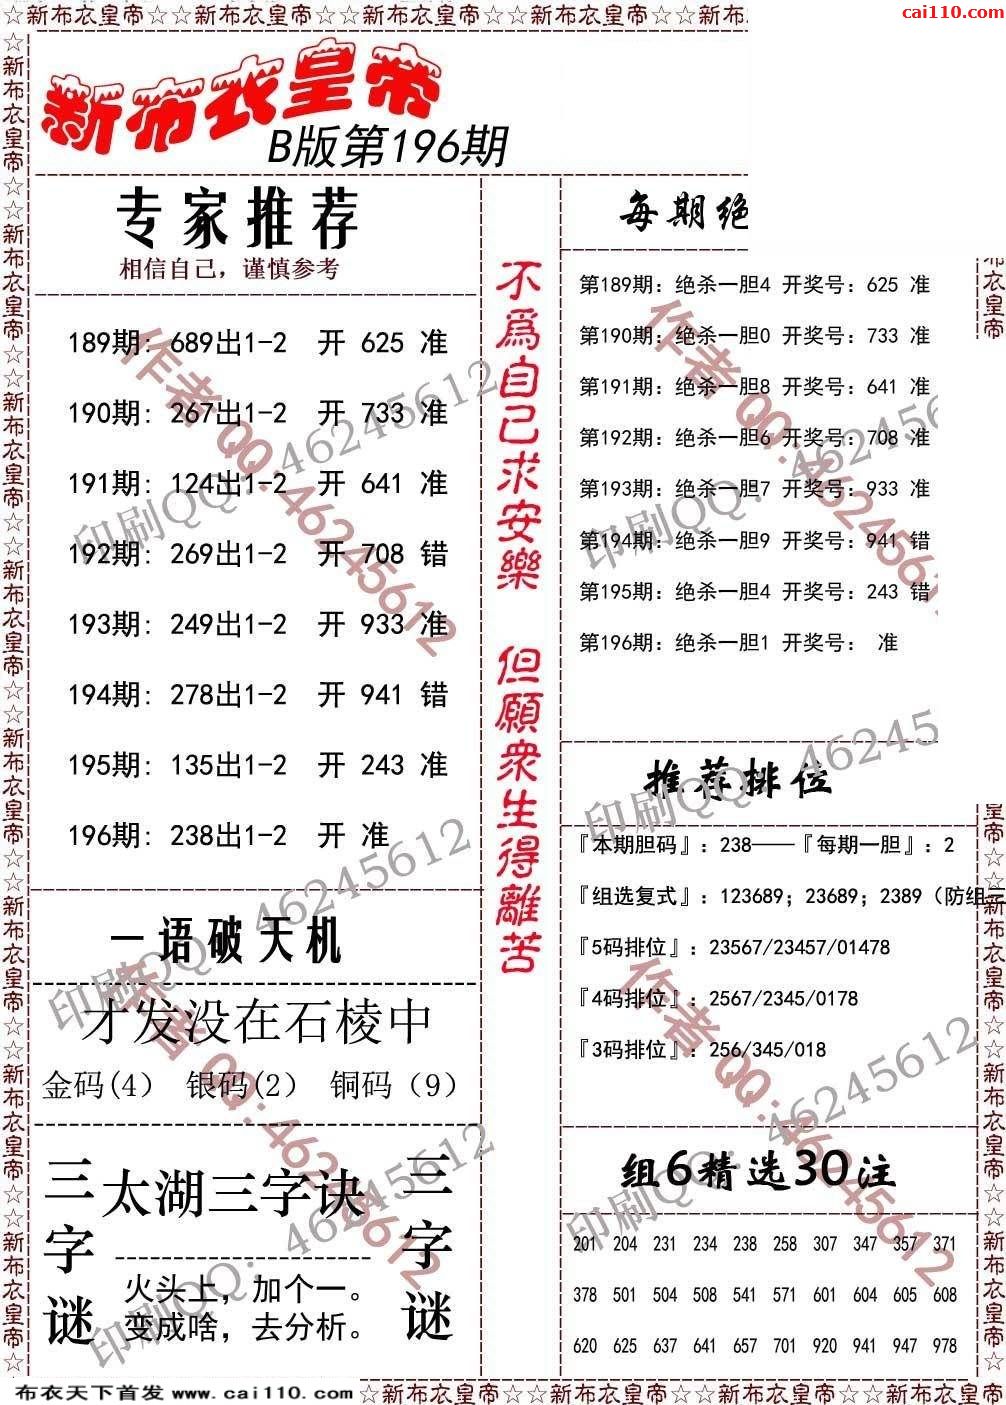 ☆新布衣皇帝☆☆新布衣皇帝☆☆新布衣皇帝☆☆新布衣皇帝☆☆新布
cai110.com
新布衣皇帝
B版第196期
专家推荐
相信自己，谨慎参考
189期: 689出1-2 开 625 准
190期: 267出1-2 开 733 准
191期: 124出1-2 开 641 准
192期: 269出1-2 开 708 错
193期: 249出1-2 开 933 准
194期: 278出1-2 开 941 错
195期: 135出1-2 开 243 准
196期: 238出1-2 开 准
一语破天机
才发没在石棱中
金码(4) 银码(2) 铜码（9）
三字谜
太湖三字诀
火头上，加个一。
变成啥，去分析。
三字谜
不為自己求安樂 但願衆生得離苦
每期绝
第189期: 绝杀一胆4 开奖号: 625 准
第190期: 绝杀一胆0 开奖号: 733 准
第191期: 绝杀一胆8 开奖号: 641 准
第192期: 绝杀一胆6 开奖号: 708 准
第193期: 绝杀一胆7 开奖号: 933 准
第194期: 绝杀一胆9 开奖号: 941 错
第195期: 绝杀一胆4 开奖号: 243 错
第196期: 绝杀一胆1 开奖号: 准
推荐排位
『本期胆码』: 238——『每期一胆』: 2
『组选复式』: 123689; 23689; 2389（防组三
『5码排位』: 23567/23457/01478
『4码排位』: 2567/2345/0178
『3码排位』: 256/345/018
组6精选30注
201 204 231 234 238 258 307 347 357 371
378 501 504 508 541 571 601 604 605 608
620 625 637 641 657 701 920 941 947 978
作者 QQ:46245612
印刷QQ: 46245612
布衣天下首发 www.cai110.com
☆新布衣皇帝☆☆新布衣皇帝☆☆新布衣皇帝☆☆新布衣皇帝☆